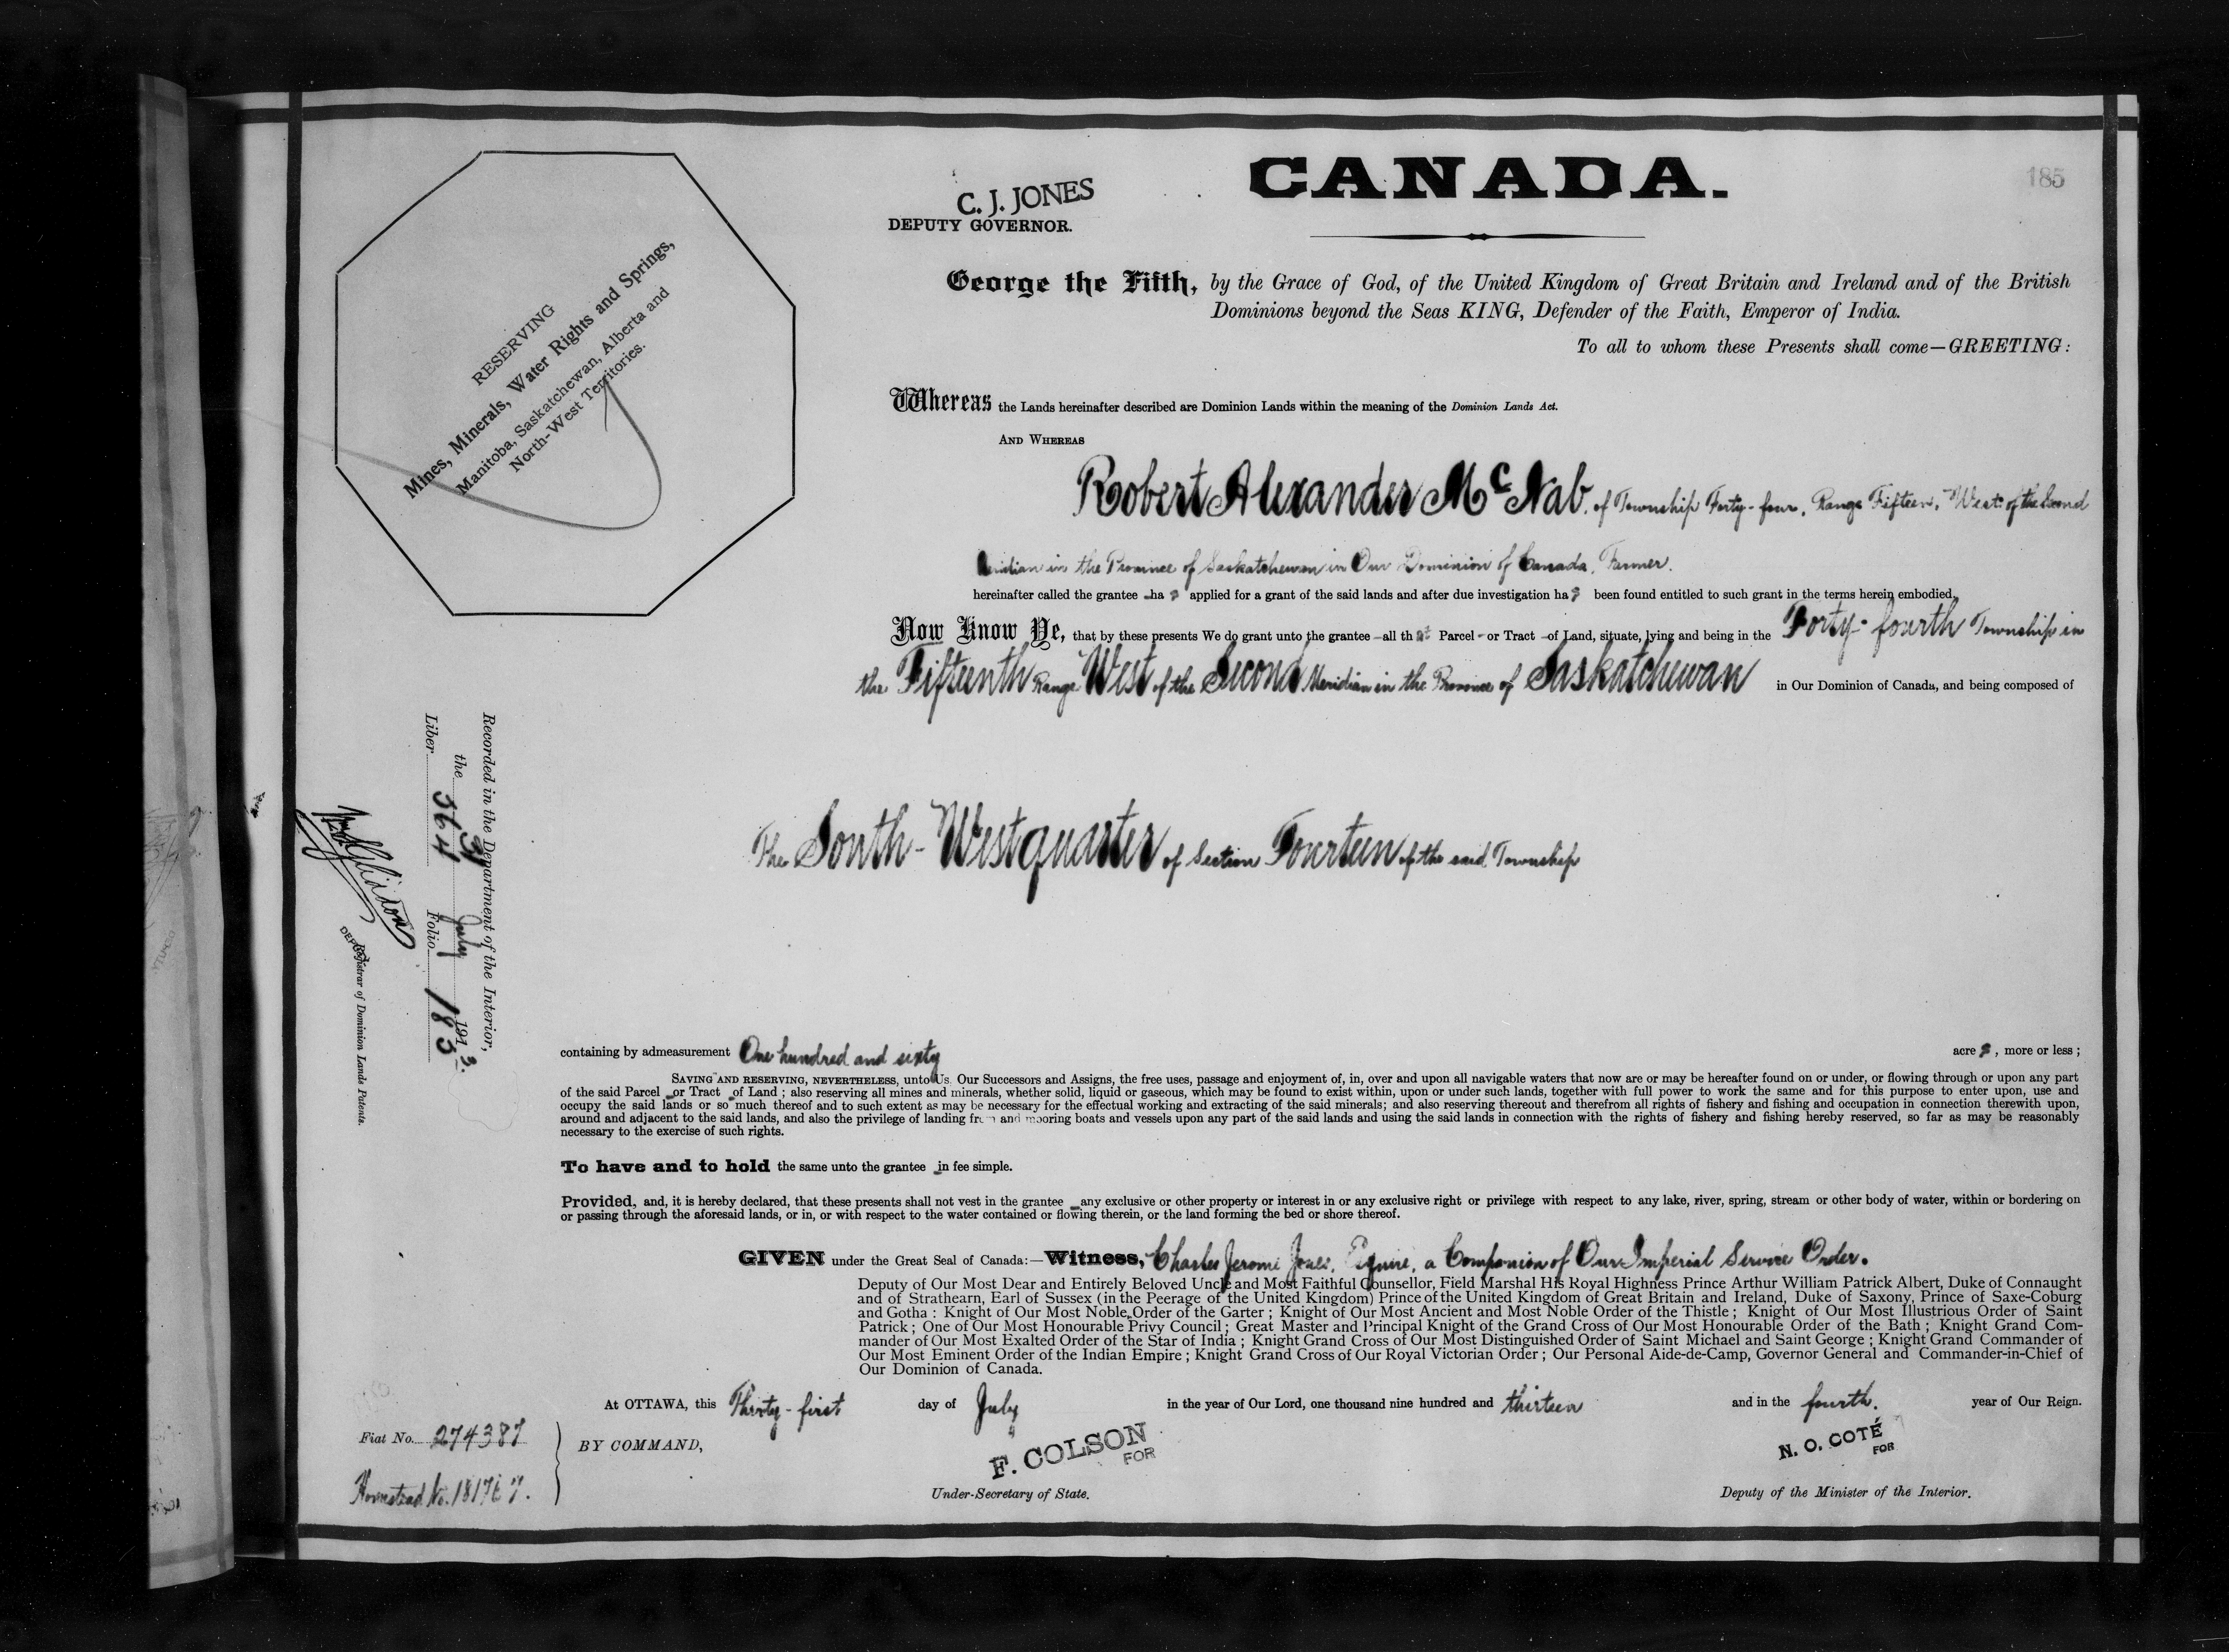 CANADA.
185
C. J. JONES
DEPUTY GOVERNOR.
RESERVING
Mines, Minerals, Water Rights and Springs,
Manitoba, Saskatchewan, Alberta and
North-West Territories.
George the Fifth, by the Grace of God, of the United Kingdom of Great Britain and Ireland and of the British
Dominions beyond the Seas KING, Defender of the Faith, Emperor of India.
To all to whom these Presents shall come—GREETING:
Whereas the Lands hereinafter described are Dominion Lands within the meaning of the Dominion Lands Act.
AND WHEREAS
Robert Alexander McNab, of Township Forty-four, Range Fifteen, West of the Second
Meridian in the Province of Saskatchewan in Our Dominion of Canada, Farmer.
hereinafter called the grantee has applied for a grant of the said lands and after due investigation has been found entitled to such grant in the terms herein embodied.
Now Know Ye, that by these presents We do grant unto the grantee all that Parcel or Tract of Land, situate, lying and being in the Forty-fourth Township in
the Fifteenth Range West of the Second Meridian in the Province of Saskatchewan in Our Dominion of Canada, and being composed of
The South-West quarter of Section Fourteen of the said Township
Recorded in the Department of the Interior,
the 31 July 1913.
Liber 364 Folio 185
DEPUTY Registrar of Dominion Lands Patents.
containing by admeasurement One hundred and sixty acres, more or less;
SAVING AND RESERVING, NEVERTHELESS, unto Us. Our Successors and Assigns, the free uses, passage and enjoyment of, in, over and upon all navigable waters that now are or may be hereafter found on or under, or flowing through or upon any part
of the said Parcel or Tract of Land; also reserving all mines and minerals, whether solid, liquid or gaseous, which may be found to exist within, upon or under such lands, together with full power to work the same and for this purpose to enter upon, use and
occupy the said lands or so much thereof and to such extent as may be necessary for the effectual working and extracting of the said minerals; and also reserving thereout and therefrom all rights of fishery and fishing and occupation in connection therewith upon,
around and adjacent to the said lands, and also the privilege of landing from and mooring boats and vessels upon any part of the said lands and using the said lands in connection with the rights of fishery and fishing hereby reserved, so far as may be reasonably
necessary to the exercise of such rights.
To have and to hold the same unto the grantee in fee simple.
Provided, and, it is hereby declared, that these presents shall not vest in the grantee any exclusive or other property or interest in or any exclusive right or privilege with respect to any lake, river, spring, stream or other body of water, within or bordering on
or passing through the aforesaid lands, or in, or with respect to the water contained or flowing therein, or the land forming the bed or shore thereof.
GIVEN under the Great Seal of Canada:—Witness, Charles Jerome Jones, Esquire, a Companion of Our Imperial Service Order.
Deputy of Our Most Dear and Entirely Beloved Uncle and Most Faithful Counsellor, Field Marshal His Royal Highness Prince Arthur William Patrick Albert, Duke of Connaught
and of Strathearn, Earl of Sussex (in the Peerage of the United Kingdom) Prince of the United Kingdom of Great Britain and Ireland, Duke of Saxony, Prince of Saxe-Coburg
and Gotha: Knight of Our Most Noble Order of the Garter; Knight of Our Most Ancient and Most Noble Order of the Thistle; Knight of Our Most Illustrious Order of Saint
Patrick; One of Our Most Honourable Privy Council; Great Master and Principal Knight of the Grand Cross of Our Most Honourable Order of the Bath; Knight Grand Com-
mander of Our Most Exalted Order of the Star of India; Knight Grand Cross of Our Most Distinguished Order of Saint Michael and Saint George; Knight Grand Commander of
Our Most Eminent Order of the Indian Empire; Knight Grand Cross of Our Royal Victorian Order; Our Personal Aide-de-Camp, Governor General and Commander-in-Chief of
Our Dominion of Canada.
At OTTAWA, this Thirty-first day of July in the year of Our Lord, one thousand nine hundred and thirteen and in the fourth year of Our Reign.
Fiat No. 274387
BY COMMAND,
F. COLSON
FOR
N. O. COTÉ
FOR
Homestead No.
Under-Secretary of State.
Deputy of the Minister of the Interior.